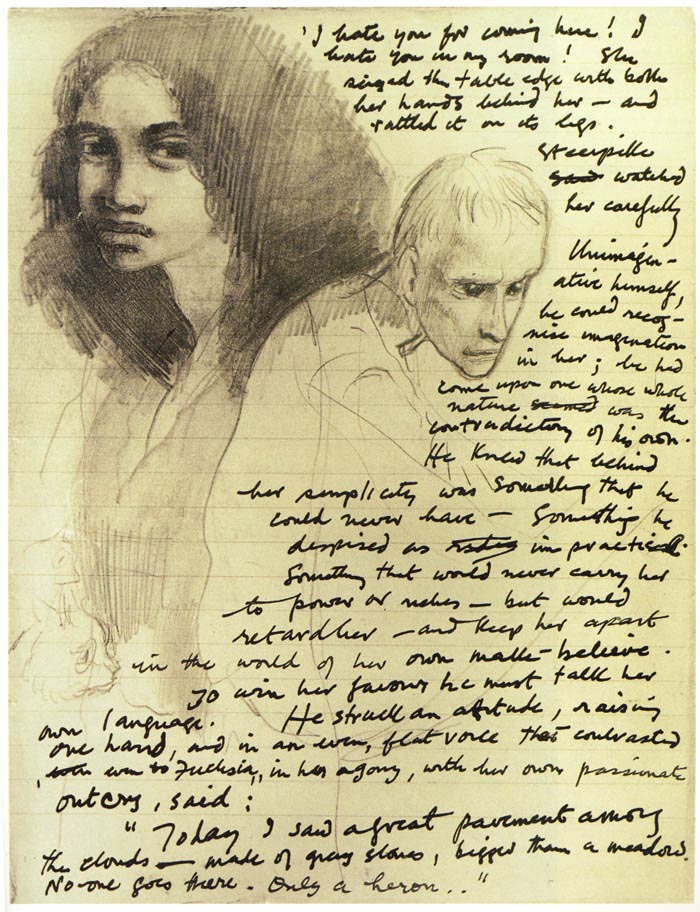 'I hate you for coming here! I
hate you in my room! She
siezed the table edge with both
her hands behind her – and
rattled it on its legs.
Steerpike
said watched
her carefully
Unimagin-
ative himself,
he could recog-
nise imagination
in her; he had
come upon one whose whole
nature seemed was the
contradictory of his own.
He knew that behind
her simplicity was something that he
could never have – Something he
despised as impractical.
Something that would never carry her
to power or riches – but would
retard her – and keep her apart
in the world of her own make-believe.
To win her favour he must talk her
own language. He struck an attitude, raising
one hand, and in an even, flat voice that contrasted
even to Fuchsia, in her agony, with her own passionate
outcry, said:
"Today I saw a great pavement among
the clouds – made of grey stones, bigger than a meadow.
No-one goes there. Only a heron.."